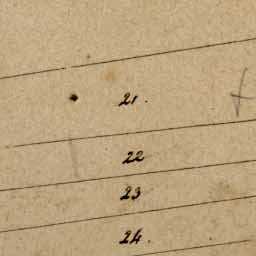 21.
22
23
24.